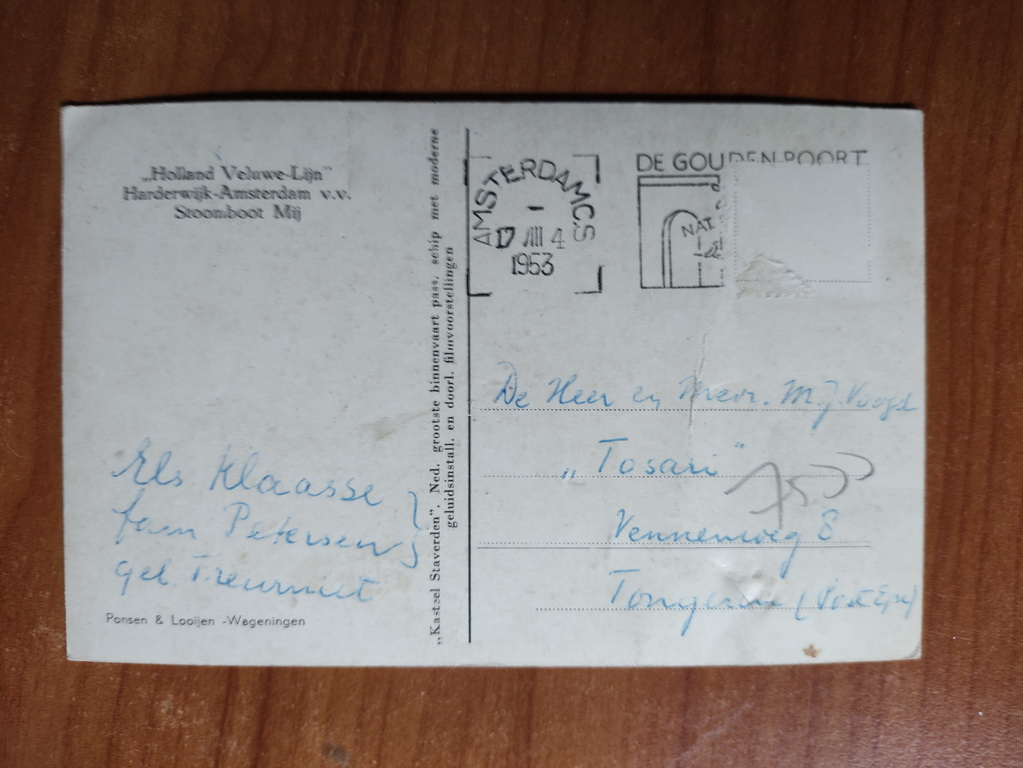 „Holland Veluwe-Lijn"
Harderwijk-Amsterdam v.v.
Stoomboot Mij
„Kasteel Staverden". Ned. grootste binnenvaart pass. schip met moderne
geluidsinstall. en doorl. filmvoorstellingen
AMSTERDAM C.S
17 VIII 4
1953
DE GOUDEN POORT
NAT.
De Heer en Mevr. M.J. Voogd
„Tosari"
Vennenweg 8
Tongeren (Post Epe)
Els Klaasse
fam Petersen
gel. Treurniet
Ponsen & Looijen -Wageningen